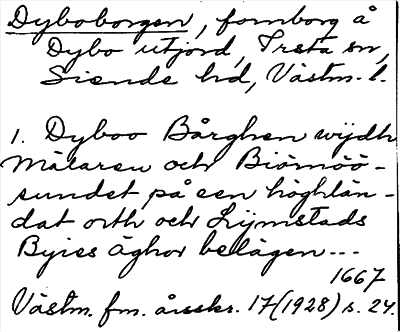 Dyboborgen, fornborg å
Dybo utjord, Irsta sn,
Siende hd, Västm. l.
1. Dyboo Bårghen wijdh
Mälaren och Biörnöö-
sundet på een höghlän-
dat orth och Lijmstads
Byies äghor belägen...
1667
Västm. fm. årsskr. 17 (1928) s. 24.